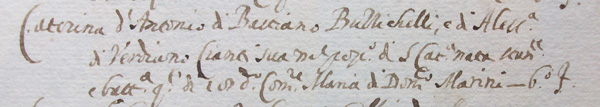 Caterina d'Antonio di Bastiano Bullichelli, e di Aless.ª
di Verdiano Cianti sua nel pop.º di S Cat.ª nata
e batt.ª q.º dì Com.e Maria di Dom.º Marini — 6.º